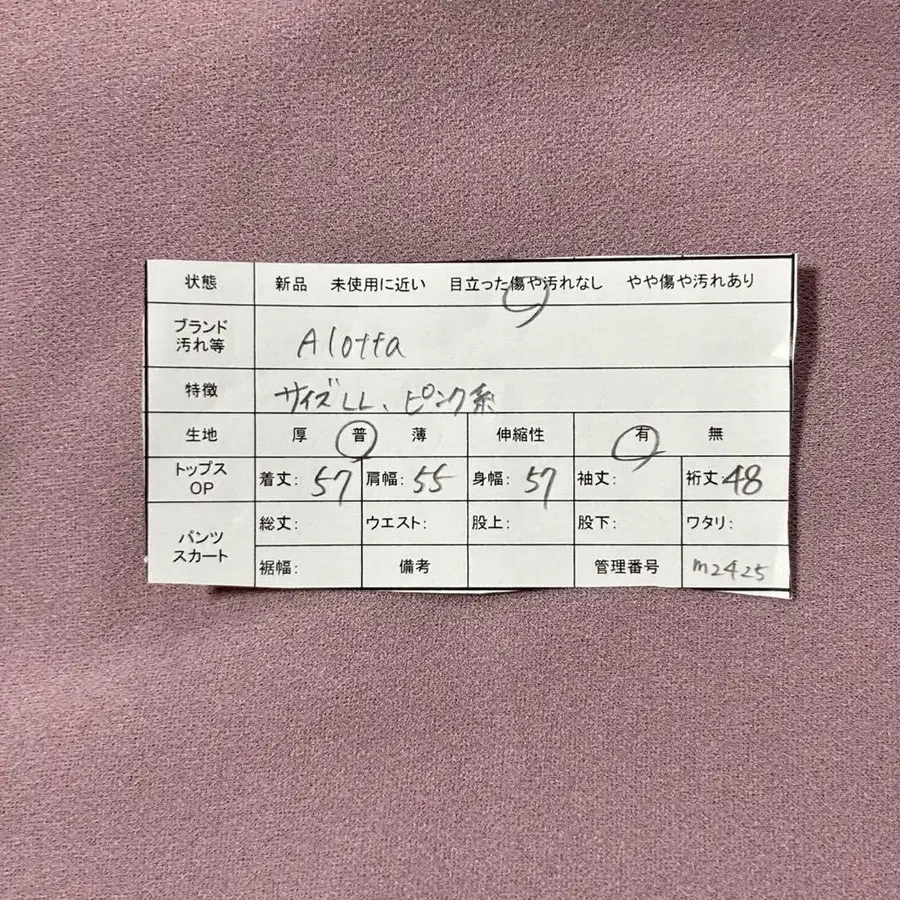 状態 新品 未使用に近い 目立った傷や汚れなし やや傷や汚れあり
ブランド
汚れ等 Alotta
特徴 サイズLL、ピンク系
生地 厚 普 薄 伸縮性 有 無
トップス
OP 着丈: 57 肩幅: 55 身幅: 57 袖丈: 裄丈 48
パンツ
スカート 総丈: ウエスト: 股上: 股下: ワタリ:
裾幅: 備考 管理番号 m2425